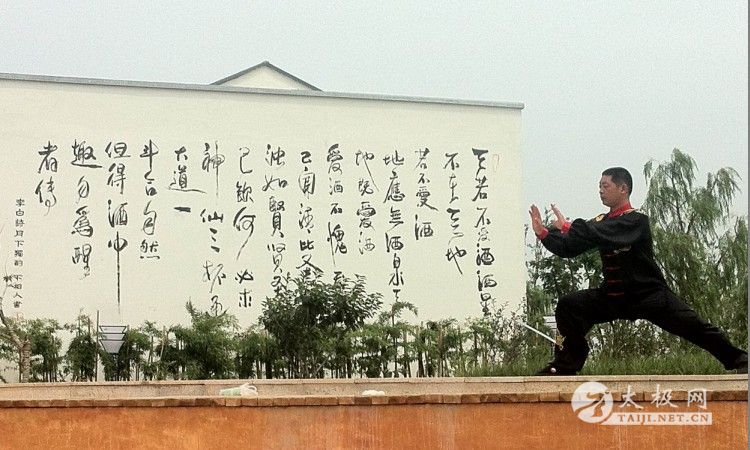 天若不爱酒酒星
不在天地
若不愛酒
地應無酒泉天
地既愛酒
愛酒不愧天
已闻清比圣
浊如賢贤
已飲何必求
神仙三杯通
大道一
斗合自然
但得酒中
趣勿為醒
者传
李白詩月下獨酌
太极网
TAIJI.NET.CN